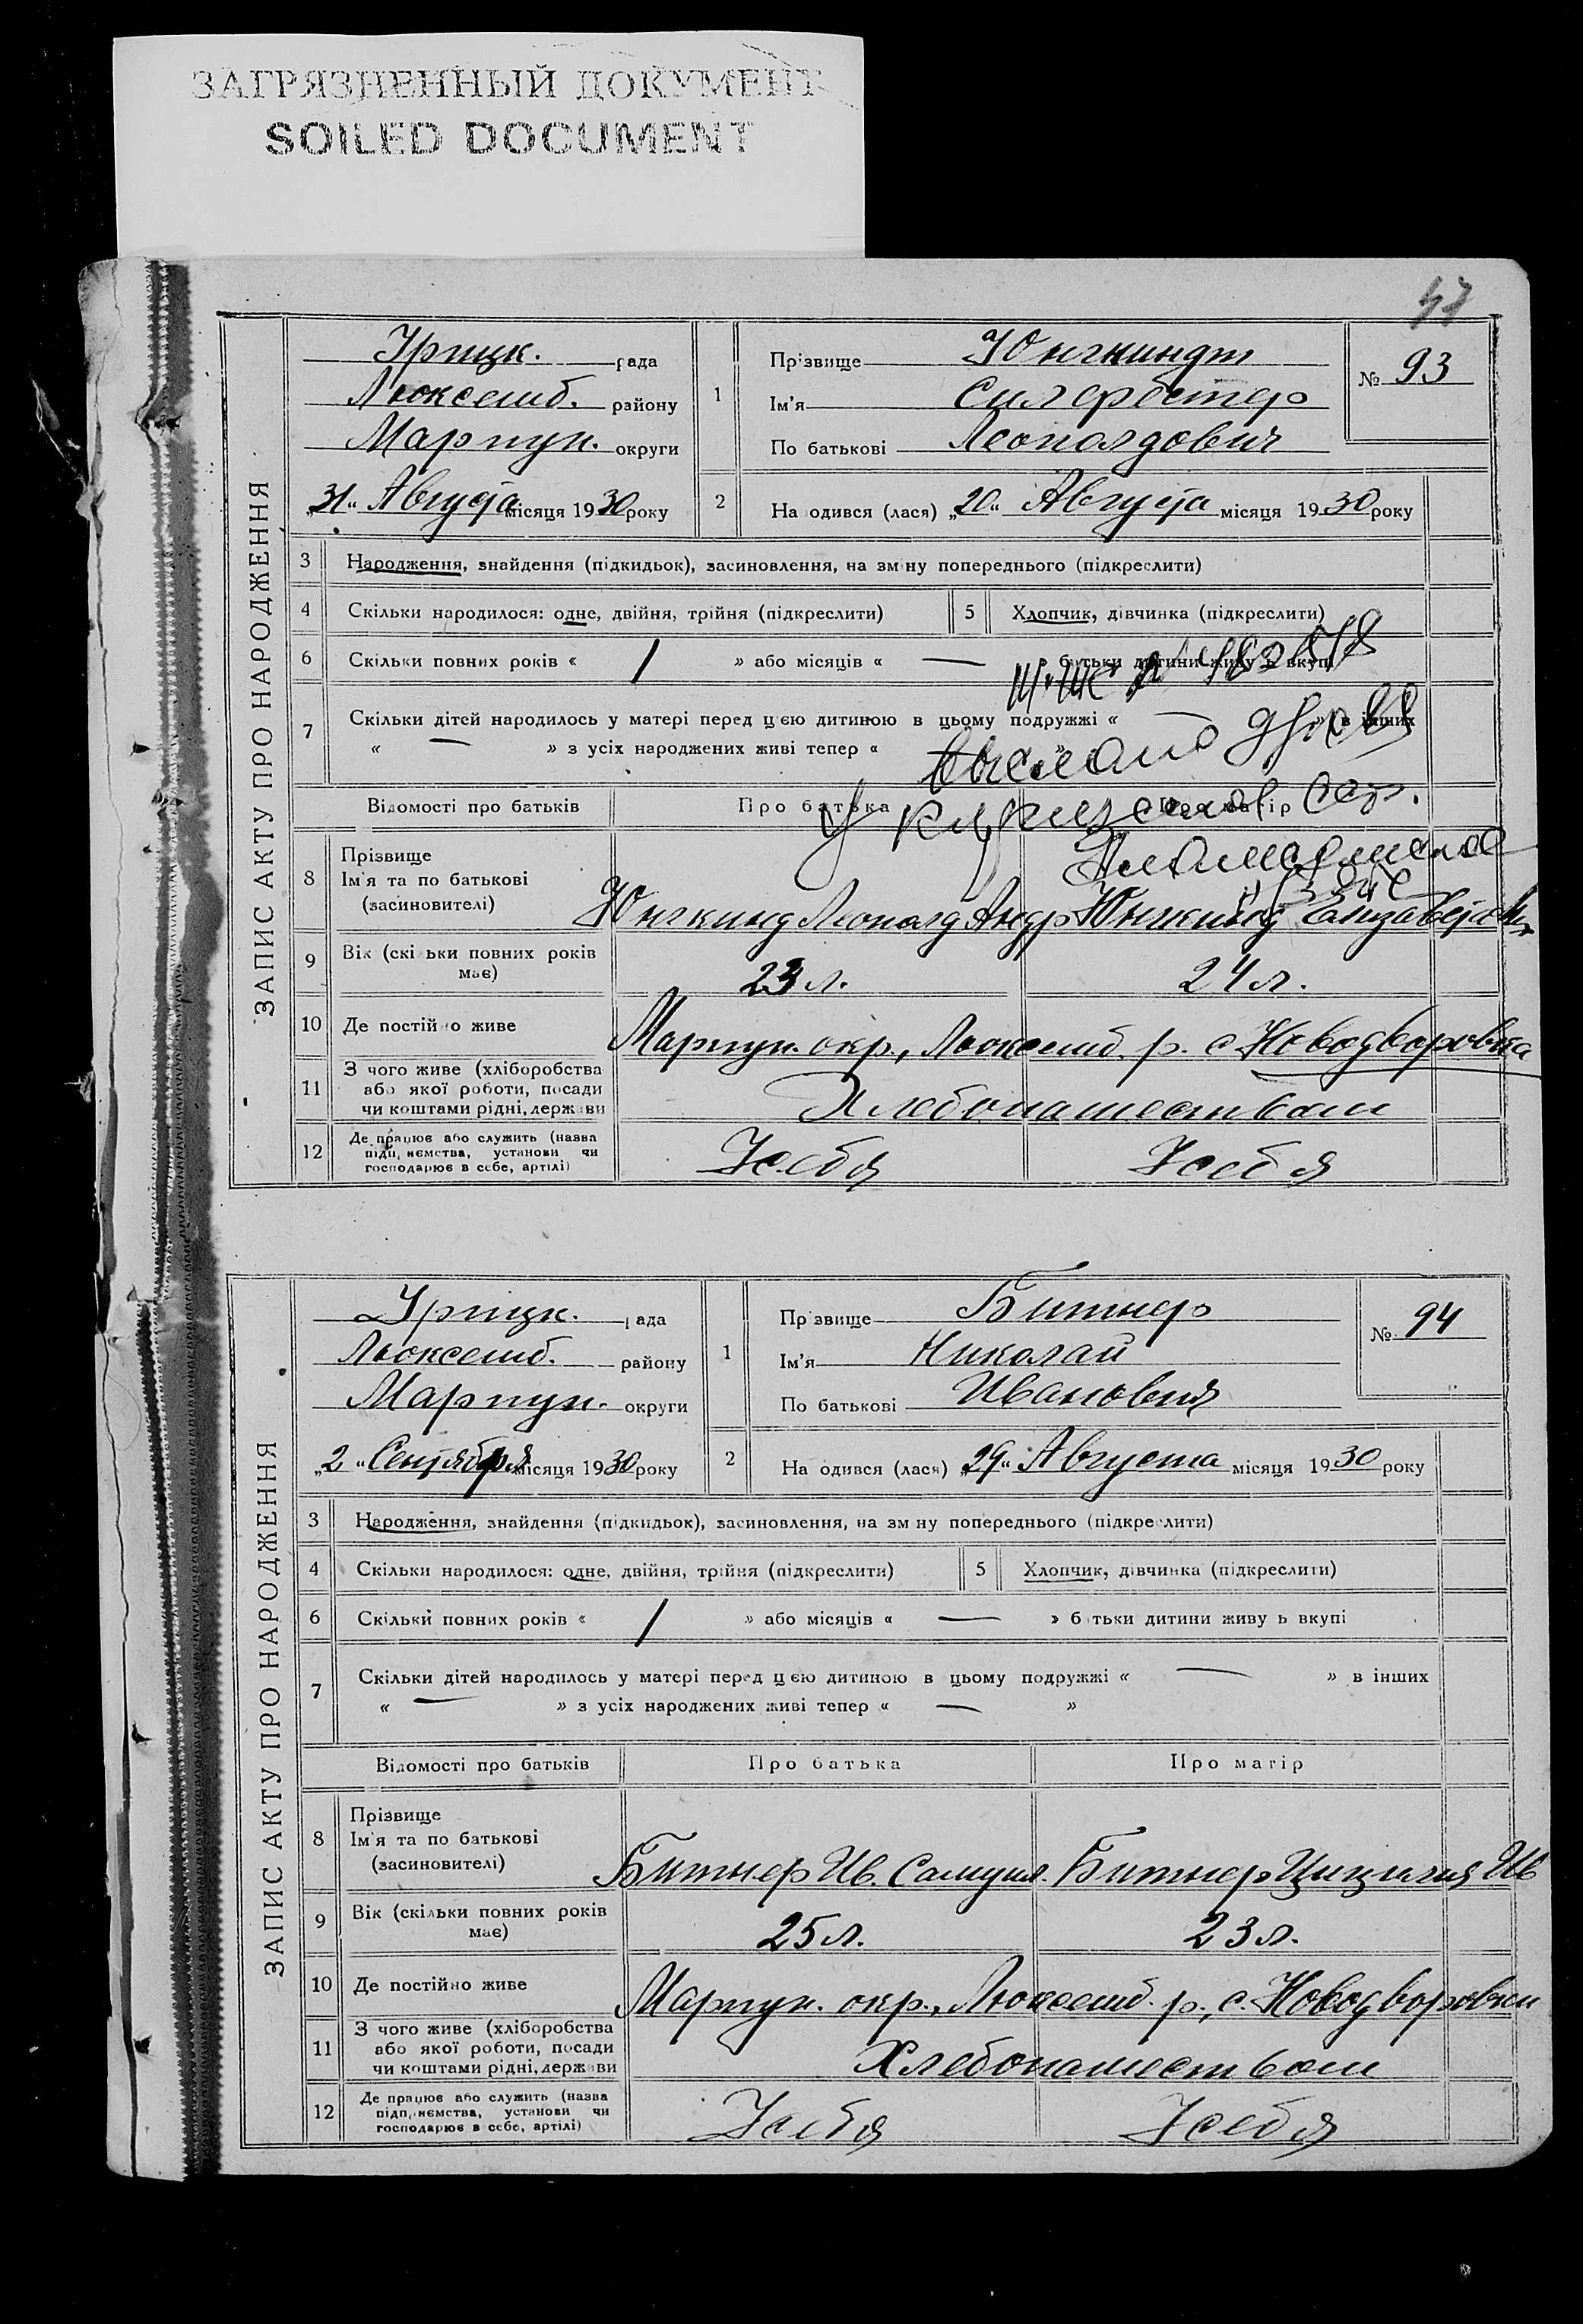 ЗАГРЯЗНЕННЫЙ ДОКУМЕНТ
SOILED DOCUMENT
47
ЗАПИС АКТУ ПРО НАРОДЖЕННЯ
Урицк. рада
Люксемб. району
Мариуп. округи
„31“ Августа місяця 1930 року
1 Прізвище Юнгкиндт
Ім'я Сильвестер
По батькові Леопольдович
№ 93
2 На одився (лася) „20“ Августа місяця 1930 року
3 Народження, знайдення (підкидьок), засиновлення, на зміну попереднього (підкреслити)
4 Скільки народилося: одне, двійня, трійня (підкреслити) 5 Хлопчик, дівчинка (підкреслити)
6 Скільки повних років « / » або місяців « — » батьки дитини живуть вкупі
7 Скільки дітей народилось у матері перед цією дитиною в цьому подружжі « — » в інших
« — » з усіх народжених живі тепер « »
Відомості про батьків Про батька Про матір
8 Прізвище
Ім'я та по батькові
(засиновителі)
Юнгкинд Леопольд Андр Юнгкинд Елизавета
9 Вік (скільки повних років
має)
23 л. 24 л.
10 Де постійно живе Мариуп. окр., Люксемб. р. с. Новодворовка
11 З чого живе (хліборобства
або якої роботи, посади
чи коштами рідні, держави
Хлебопашеством
12 Де працює або служить (назва
підприємства, установи чи
господарює в себе, артілі)
У себя У себя
ЗАПИС АКТУ ПРО НАРОДЖЕННЯ
Урицк. рада
Люксемб. району
Мариуп. округи
„2“ Сентября місяця 1930 року
1 Прізвище Битнер
Ім'я Николай
По батькові Иванович
№ 94
2 На одився (лася) „29“ Августа місяця 1930 року
3 Народження, знайдення (підкидьок), засиновлення, на зміну попереднього (підкреслити)
4 Скільки народилося: одне, двійня, трійня (підкреслити) 5 Хлопчик, дівчинка (підкреслити)
6 Скільки повних років « / » або місяців « — » батьки дитини живуть вкупі
7 Скільки дітей народилось у матері перед цією дитиною в цьому подружжі « — » в інших
« — » з усіх народжених живі тепер « — »
Відомості про батьків Про батька Про матір
8 Прізвище
Ім'я та по батькові
(засиновителі)
Битнер Ив. Самуил. Битнер Цицилия Ив
9 Вік (скільки повних років
має)
25 л. 23 л.
10 Де постійно живе Мариуп. окр., Люксемб. р., с. Новодворовки
11 З чого живе (хліборобства
або якої роботи, посади
чи коштами рідні, держави
Хлебопашеством
12 Де працює або служить (назва
підприємства, установи чи
господарює в себе, артілі)
У себя У себя